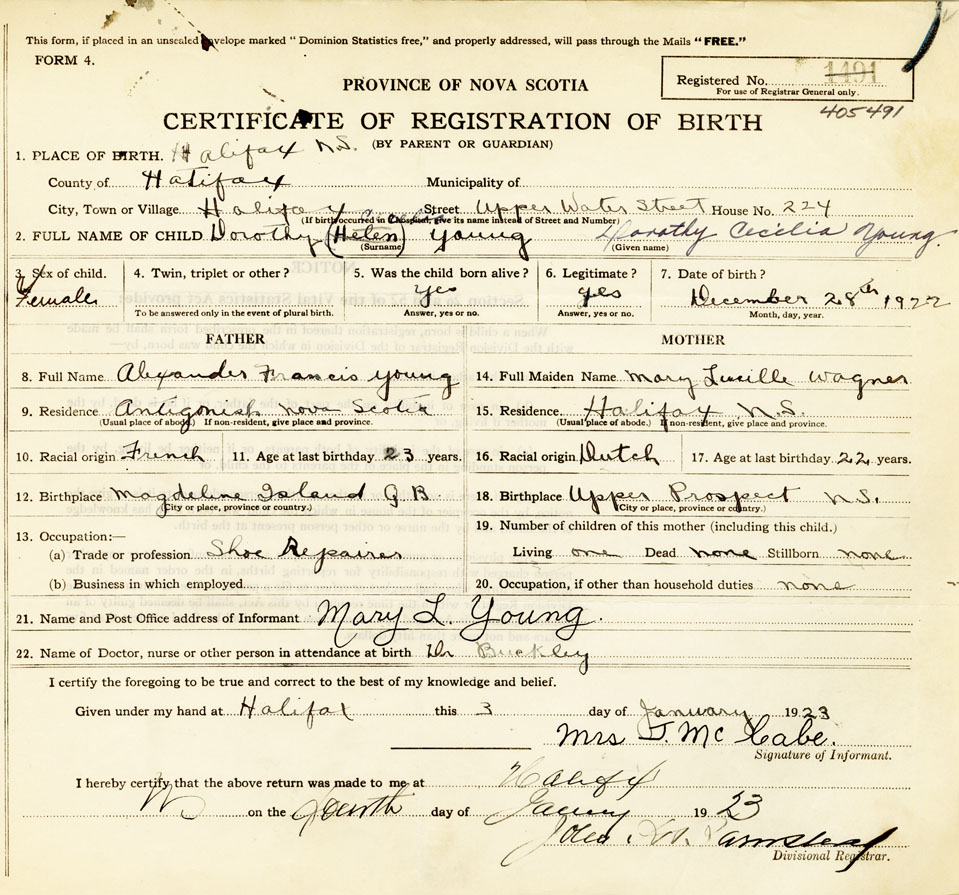 This form, if placed in an unsealed envelope marked "Dominion Statistics free," and properly addressed, will pass through the Mails "FREE."
FORM 4.
Registered No. 1491
For use of Registrar General only.
405491
PROVINCE OF NOVA SCOTIA
CERTIFICATE OF REGISTRATION OF BIRTH
(BY PARENT OR GUARDIAN)
1. PLACE OF BIRTH. Halifax N.S.
County of Halifax Municipality of
City, Town or Village Halifax Street Upper Water Street House No. 224
(If birth occurred in a hospital, give its name instead of Street and Number)
2. FULL NAME OF CHILD Dorothy (Helen) Young Dorothy Cecilia Young.
(Surname) (Given name)
3. Sex of child. 4. Twin, triplet or other? 5. Was the child born alive? 6. Legitimate? 7. Date of birth?
Female yes yes December 28th 1922
To be answered only in the event of plural birth. Answer, yes or no. Answer, yes or no. Month, day, year.
FATHER MOTHER
8. Full Name Alexander Francis Young 14. Full Maiden Name Mary Lucille Wagner
9. Residence Antigonish Nova Scotia 15. Residence. Halifax N.S.
(Usual place of abode.) If non-resident, give place and province. (Usual place of abode.) If non-resident, give place and province.
10. Racial origin French 11. Age at last birthday 23 years. 16. Racial origin Dutch 17. Age at last birthday. 22 years.
12. Birthplace Magdeline Island Q B. 18. Birthplace Upper Prospect N.S.
(City or place, province or country.) (City or place, province or country.)
13. Occupation:— 19. Number of children of this mother (including this child.)
(a) Trade or profession Shoe Repairer Living one Dead none Stillborn none
(b) Business in which employed 20. Occupation, if other than household duties none
21. Name and Post Office address of Informant Mary L. Young.
22. Name of Doctor, nurse or other person in attendance at birth Dr Buckley
I certify the foregoing to be true and correct to the best of my knowledge and belief.
Given under my hand at Halifax this 3 day of Januuary 1923
Mrs J. McCabe.
Signature of Informant.
I hereby certify that the above return was made to me at Halifx
on the fourth day of January 1923
John
Divisional Registrar.